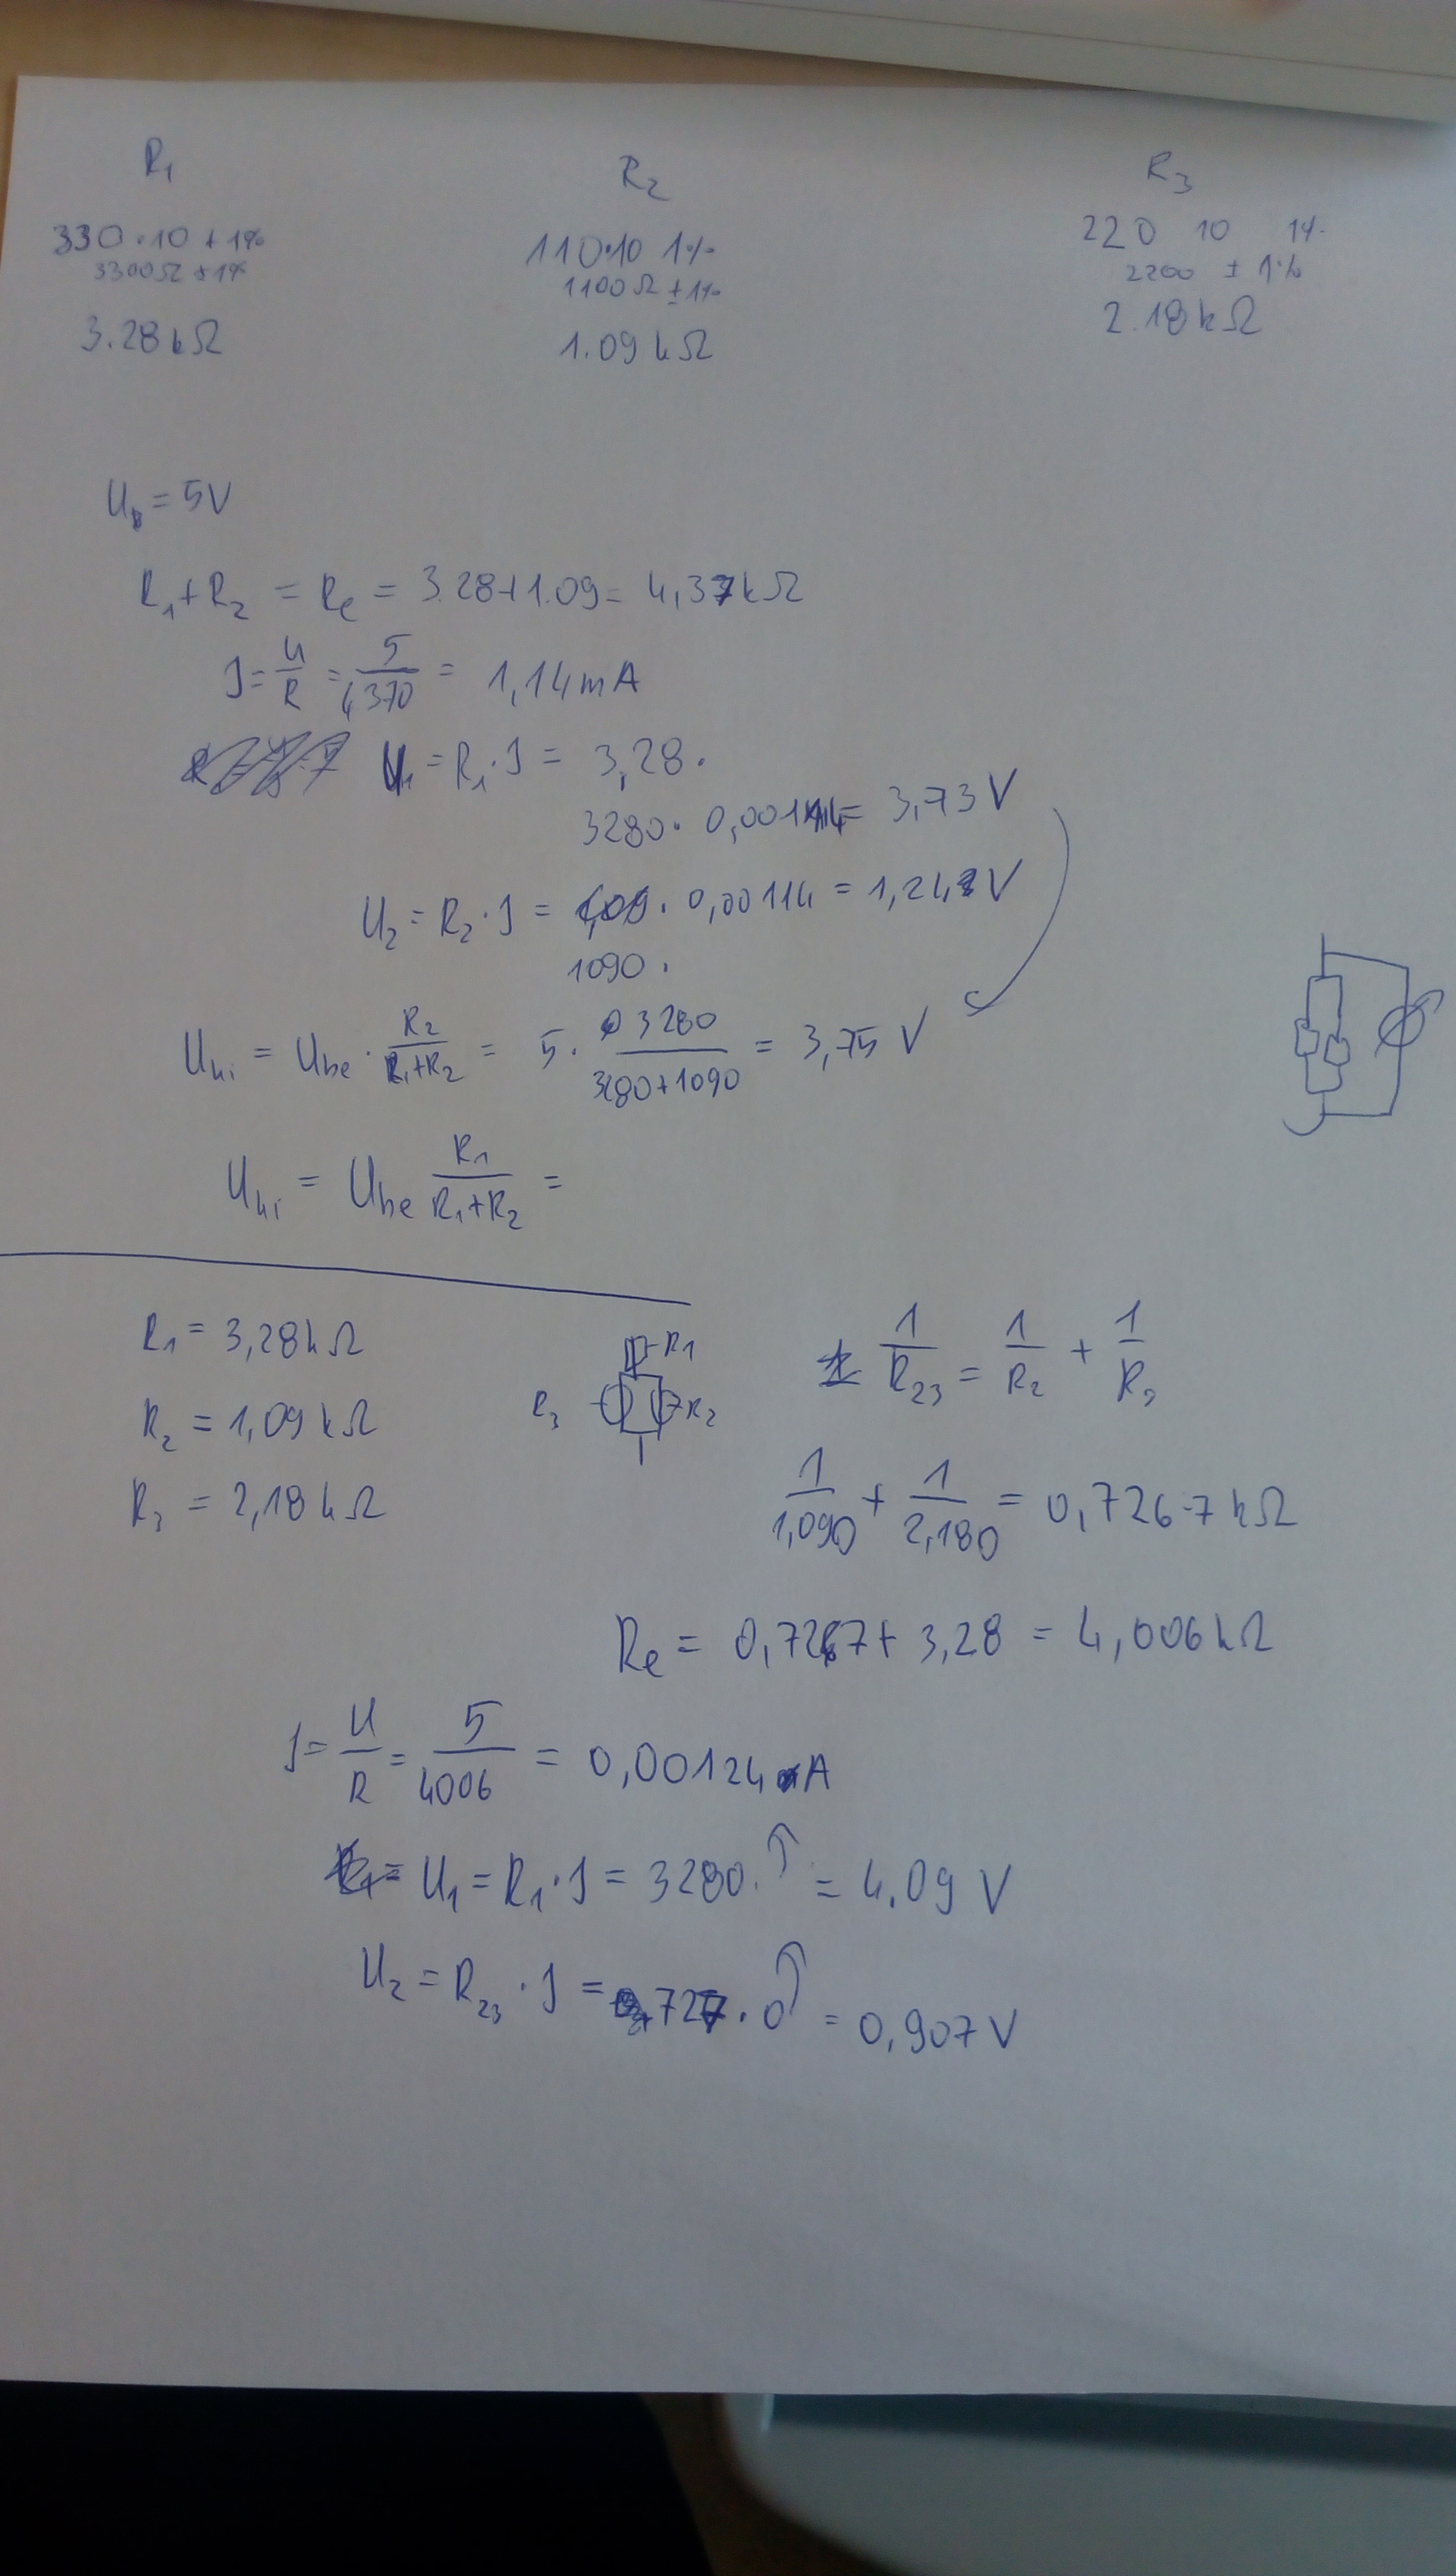 R1 R2 R3
330·10 ±1% 110·10 1% 220 10 1%
3300Ω ±1% 1100Ω ±1% 2200 ±1%
3.28kΩ 1.09kΩ 2.18kΩ
Ub = 5V
R1+R2 = Re = 3.28+1.09 = 4,37kΩ
J = U/R = 5/4370 = 1,14mA
U1 = R1·J = 3,28.
3280· 0,00114 = 3,73V
U2 = R2·J = 1,09. 0,00114 = 1,242V
1090.
Uki = Ube · R2/(R1+R2) = 5· 3280/(3280+1090) = 3,75 V
Uki = Ube R1/(R1+R2) =
R1 = 3,28kΩ
R2 = 1,09kΩ
R3 = 2,18kΩ
R1
R3 R2
1/R23 = 1/R2 + 1/R3
1/1,090 + 1/2,180 = 0,7267kΩ
Re = 0,7267+ 3,28 = 4,006kΩ
J = U/R = 5/4006 = 0,00124 A
U1 = R1·J = 3280. = 4.09 V
U2 = R23·J = 727·0 = 0,907V